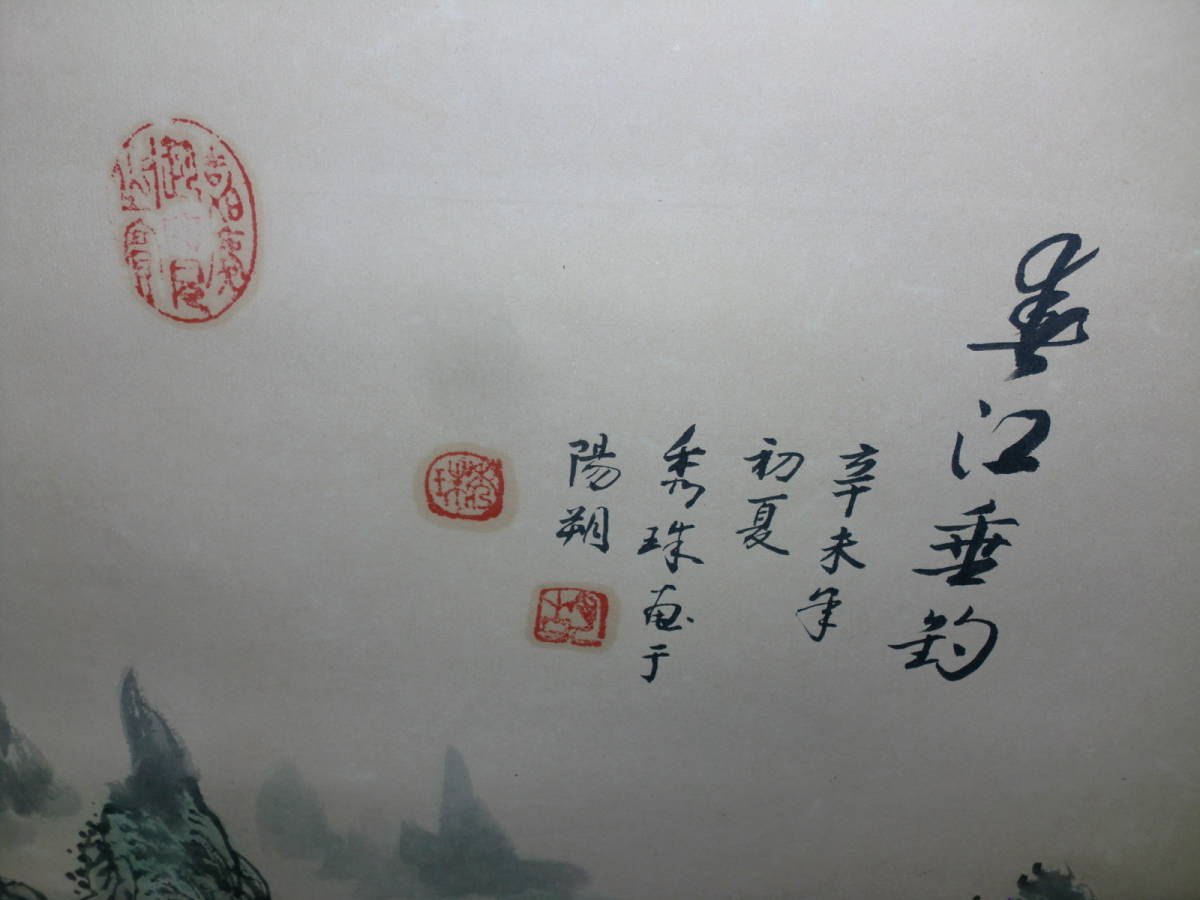 春江垂钓
辛未年
初夏
秀珠画于
陽朔
秀珠